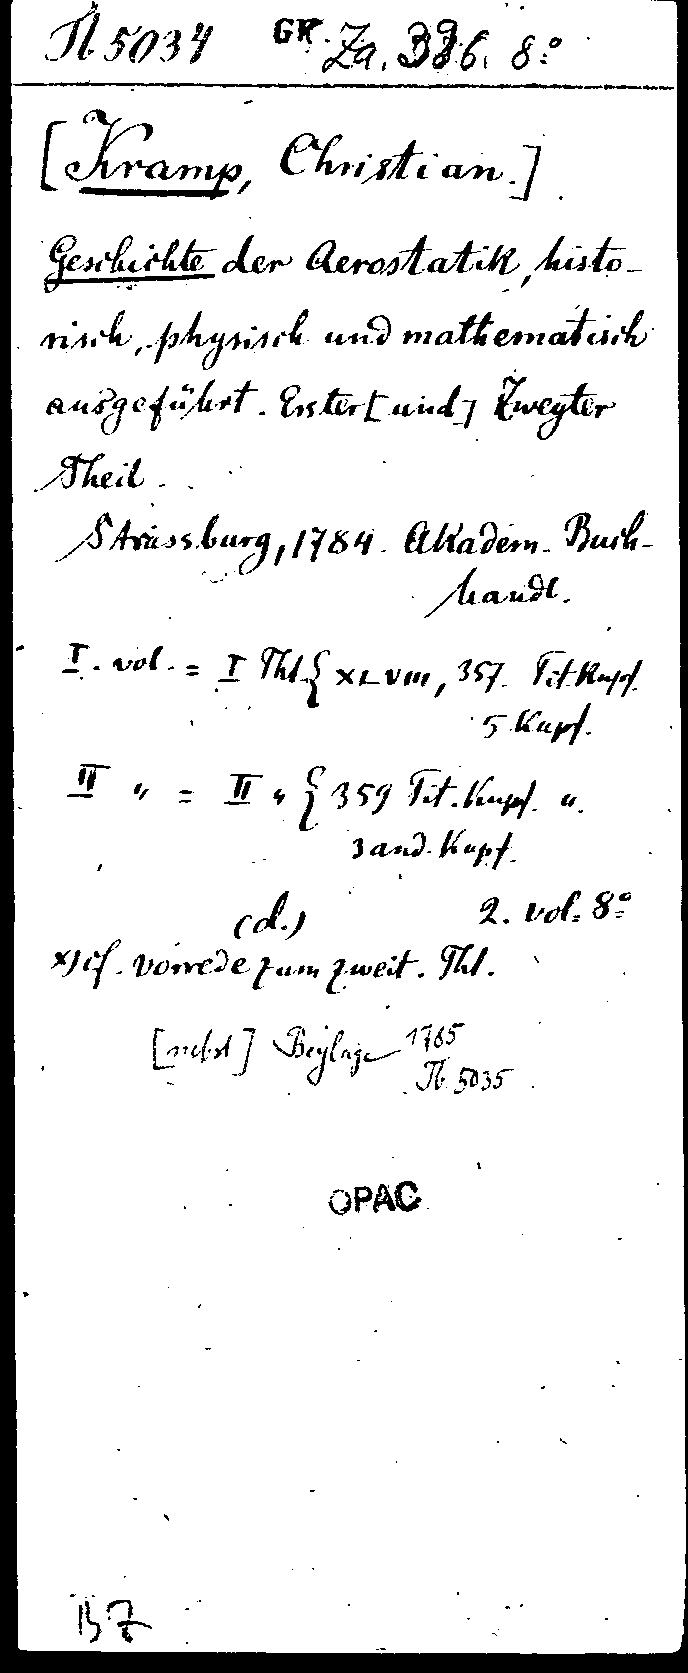 5034 GK. Za. 386. 8:°
[Kramp, Christian.]
Geschichte der Aerostatik, histo-
risch, physisch und mathematisch
ausgeführt. Erster [und] Zweyter
Theil.
Strassburg, 1784. Akadem. Buch-
handl.
I. vol. = I Thl. { XLVIII, 357. Tit. Kupf.
5 Kupf.
II " = II " { 359 Tit. Kupf. u.
3 and. Kupf.
(d.) 2. vol. 8°
x) cf. Vorrede zum zweit. Thl.
[nebst] Beylage 1785
5035
OPAC